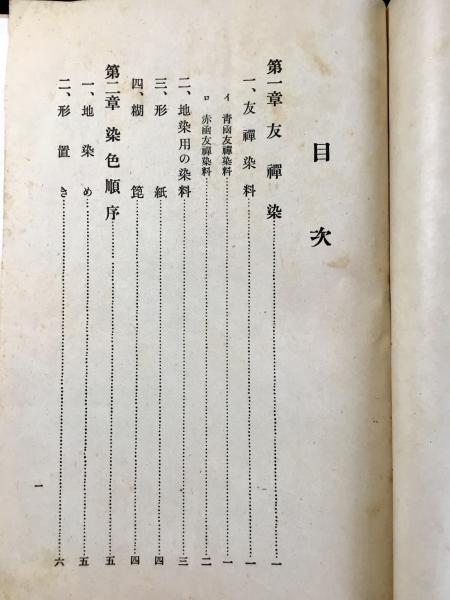 目次
第一章 友禪染……一
一、友禪染料……一
イ 青凾友禪染料……一
ロ 赤凾友禪染料……二
二、地染用の染料……三
三、形紙……四
四、糊箆……四
第二章 染色順序……五
一、地染め……五
二、形置き……六
一